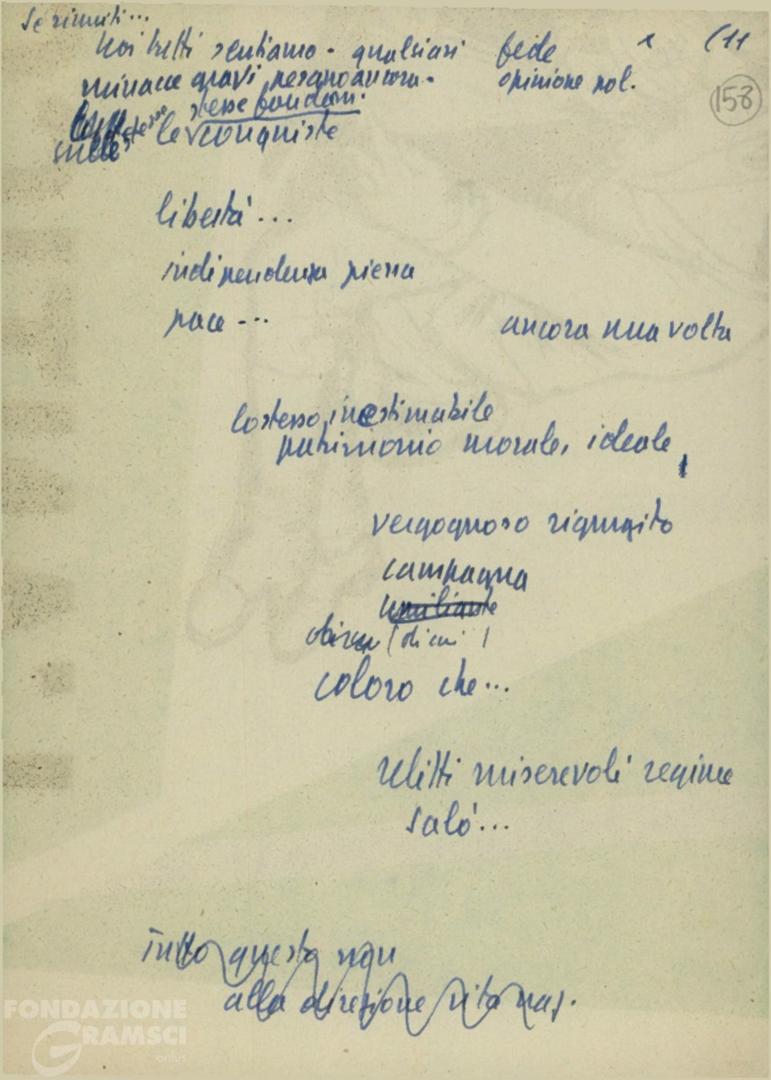 Se rinunti...
Noi tutti sentiamo - qualsiasi fede x (11
minacce gravi pesano ancora - opinione pol.
158
stesse fondam.
le conquiste
libertà...
indipendenza piena
pace ---
ancora una volta
lo stesso inestimabile
patrimonio morale, ideale,
vergognoso rigurgito
campagna
umiliante
(di cui)
coloro che...
relitti miserevoli regime
Salò...
tutto questo non
alla direzione vita naz.
FONDAZIONE
GRAMSCI
onlus